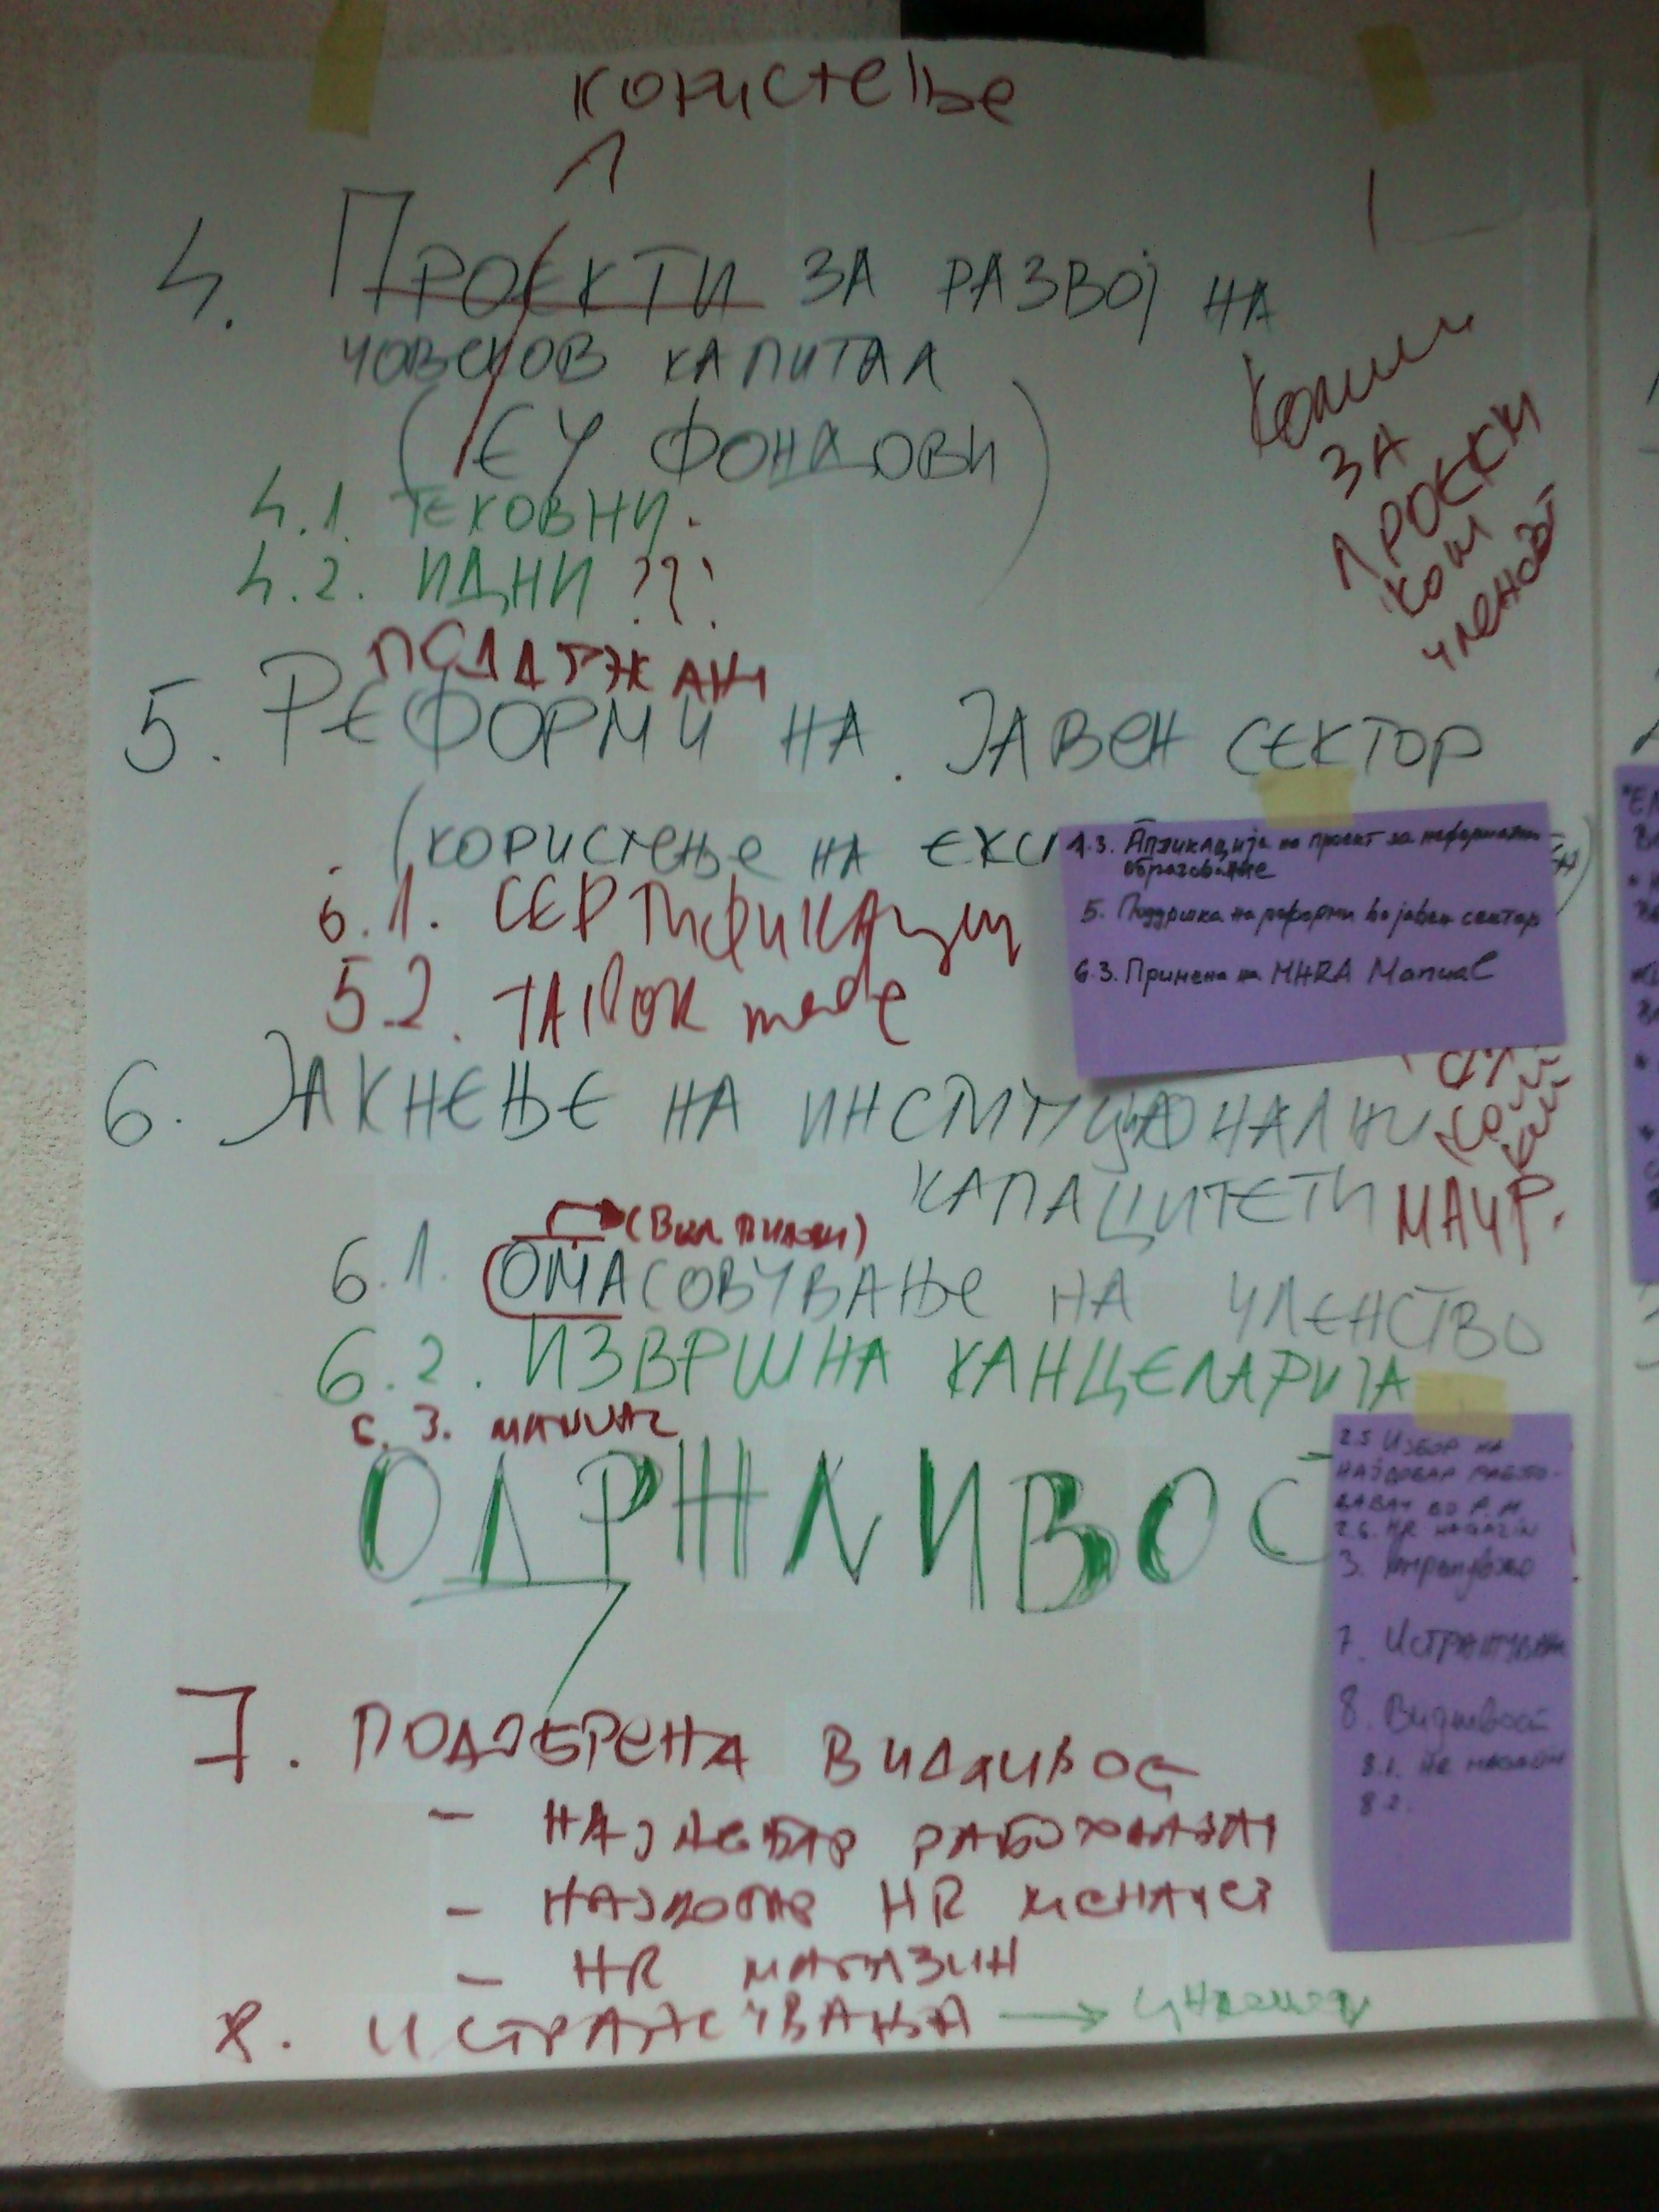 користење
4. Проекти за развој на
човеков капитал
(ЕУ фондови)
4.1. Тековни.
4.2. Идни ???
за
кои
членови
5. Реформи на. Јавен сектор
(користење на
5.1. Сертификации
5.2. TAILOR made
4.3. Апликација на проект за неформално
образование
5. Поддршка на реформи во јавен сектор
6.3. Примена на MHRA Manual
6. Јакнење на институционални
капацитети МАЧР.
6.1. Омасовување на членство
6.2. Извршна канцеларија
6.3. MANUAL
ОДРЖЛИВОС
2.5 Избор на
најдобар рабо-
давач во Р.М
2.6. HR магазин
7. Истражувањ
8. Видливост
8.1. HR магазин
8.2.
7. Подобрена видливост
- Најдобар работодавач
- Најдобар HR менаџер
- HR магазин
8. Истражувања →